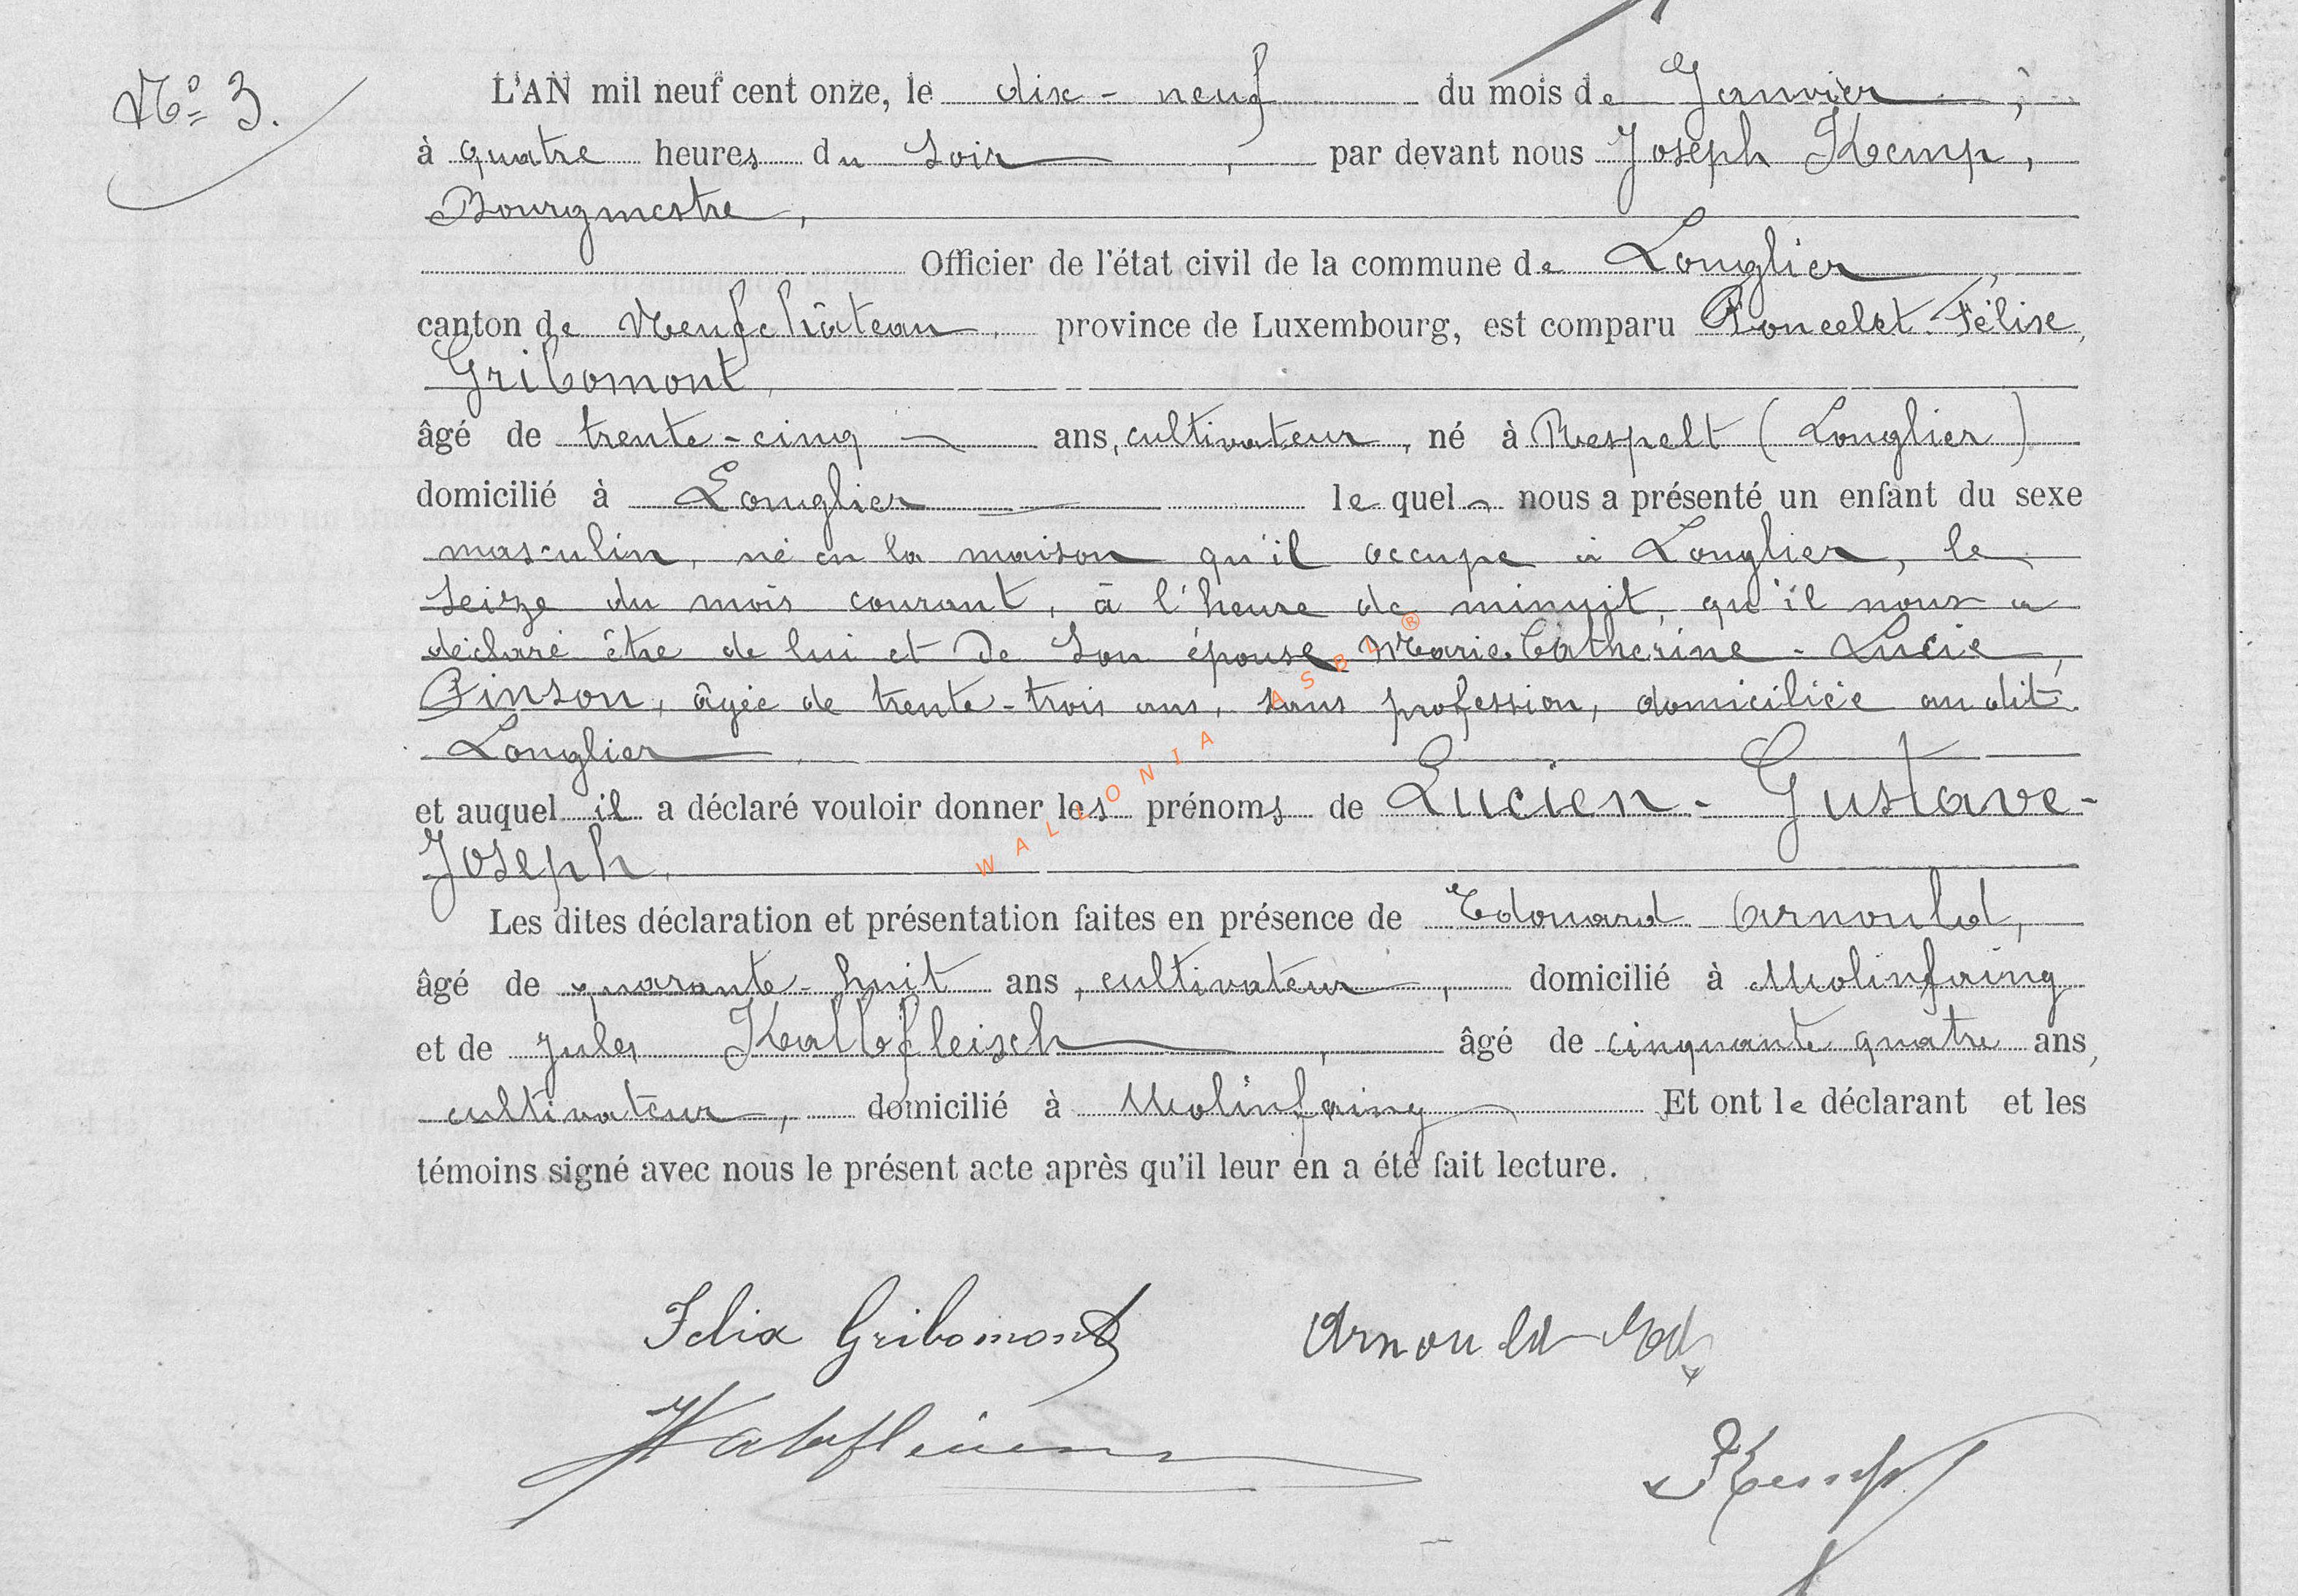 N° 3.
L'AN mil neuf cent onze, le dix-neuf du mois de Janvier,
à quatre heures du soir, par devant nous Joseph Kemp,
Bourgmestre,
Officier de l'état civil de la commune de Longlier,
canton de Neufchâteau, province de Luxembourg, est comparu Poncelet-Félix,
Gribomont,
âgé de trente-cinq ans, cultivateur, né à Respelt (Longlier)
domicilié à Longlier lequel nous a présenté un enfant du sexe
masculin, né en la maison qu'il occupe à Longlier, le
seize du mois courant, à l'heure de minuit, qu'il nous a
déclaré être de lui et de son épouse Marie-Catherine-Lucie,
Pinson, âgée de trente-trois ans, sans profession, domiciliée au dit
Longlier
et auquel il a déclaré vouloir donner les prénoms de Lucien-Gustave-
Joseph.
Les dites déclaration et présentation faites en présence de Edouard Arnould,
âgé de quarante-huit ans, cultivateur, domicilié à Molinfaing
et de Jules Kalbfleisch, âgé de cinquante quatre ans,
cultivateur, domicilié à Molinfaing Et ont le déclarant et les
témoins signé avec nous le présent acte après qu'il leur en a été fait lecture.
Felix Gribomont Arnould Ed
Kemp
WALLONIA ASBL ®